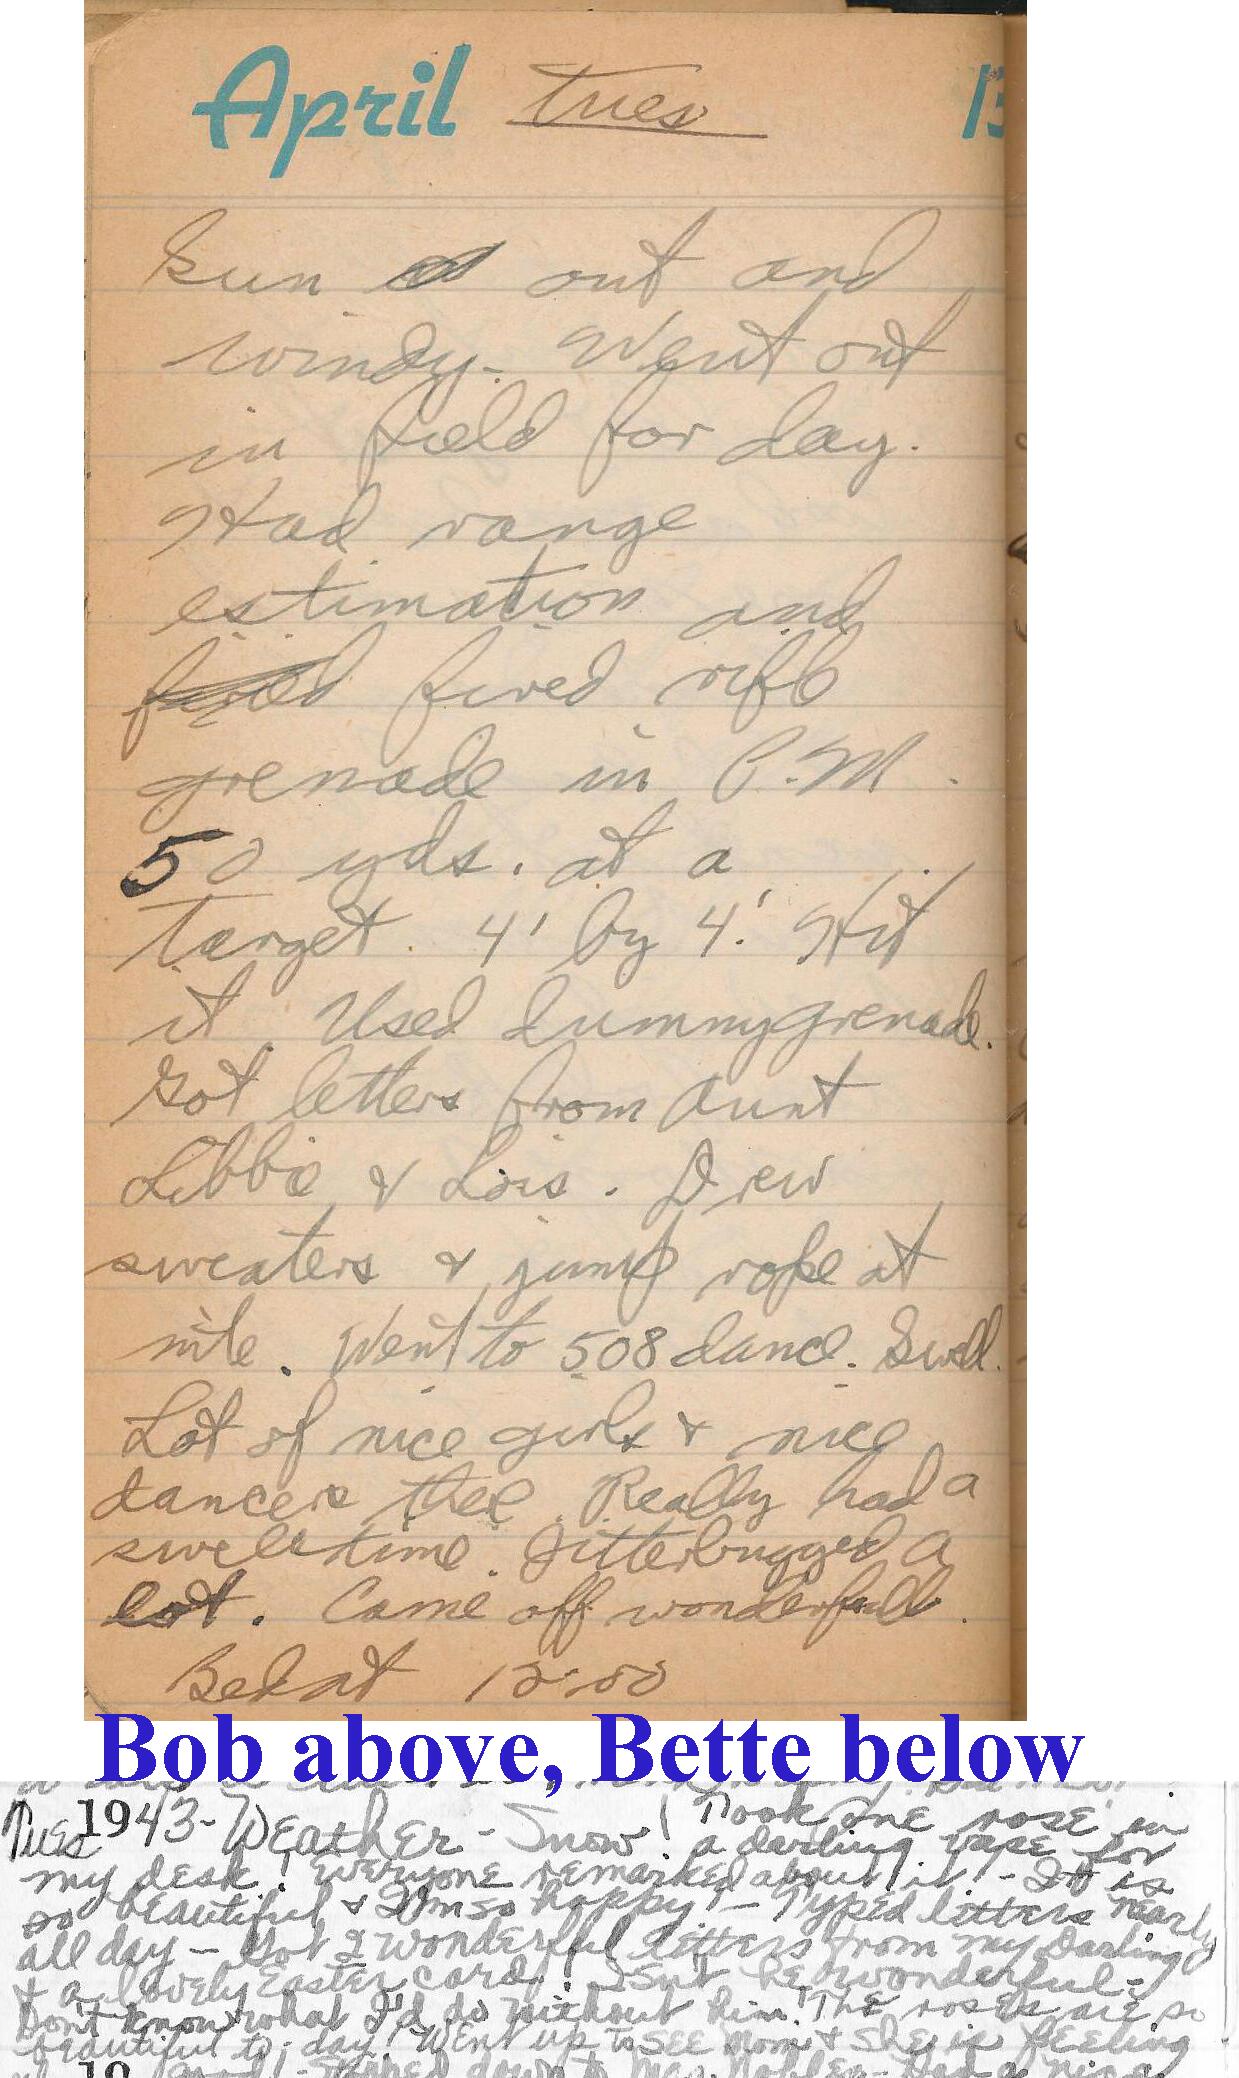 April Tues 13
Sun out and
windy. Went out
in field for day.
Had range
estimation and
fired fired rifle
grenade in P.M.
50 yds. at a
target 4' by 4'. Hit
it. Used dummy grenade.
Got letters from Aunt
Libbie & Lois. Drew
sweaters & jump rope at
nite. Went to 508 dance. Swell.
Lot of nice girls & nice
dancers there. Really had a
swell time. Jitterbugged a
lot. Came off wonderfull.
Bed at 12:00
Bob above, Bette below
Tues 1943- Weather - Snow! Took one rose in
my desk! a darling vase for
Everyone remarked about it! - It is
so beautiful & I'm so happy! - Typed letters nearly
all day - Got 2 wonderful letters from my Darling
& a lovely Easter card! Isn't he wonderful -
Don't know what I'd do without him! The roses are so
beautiful to-day! Went up to see Mom & she is feeling
19 good - Stopped down to Mrs. - Had a nice